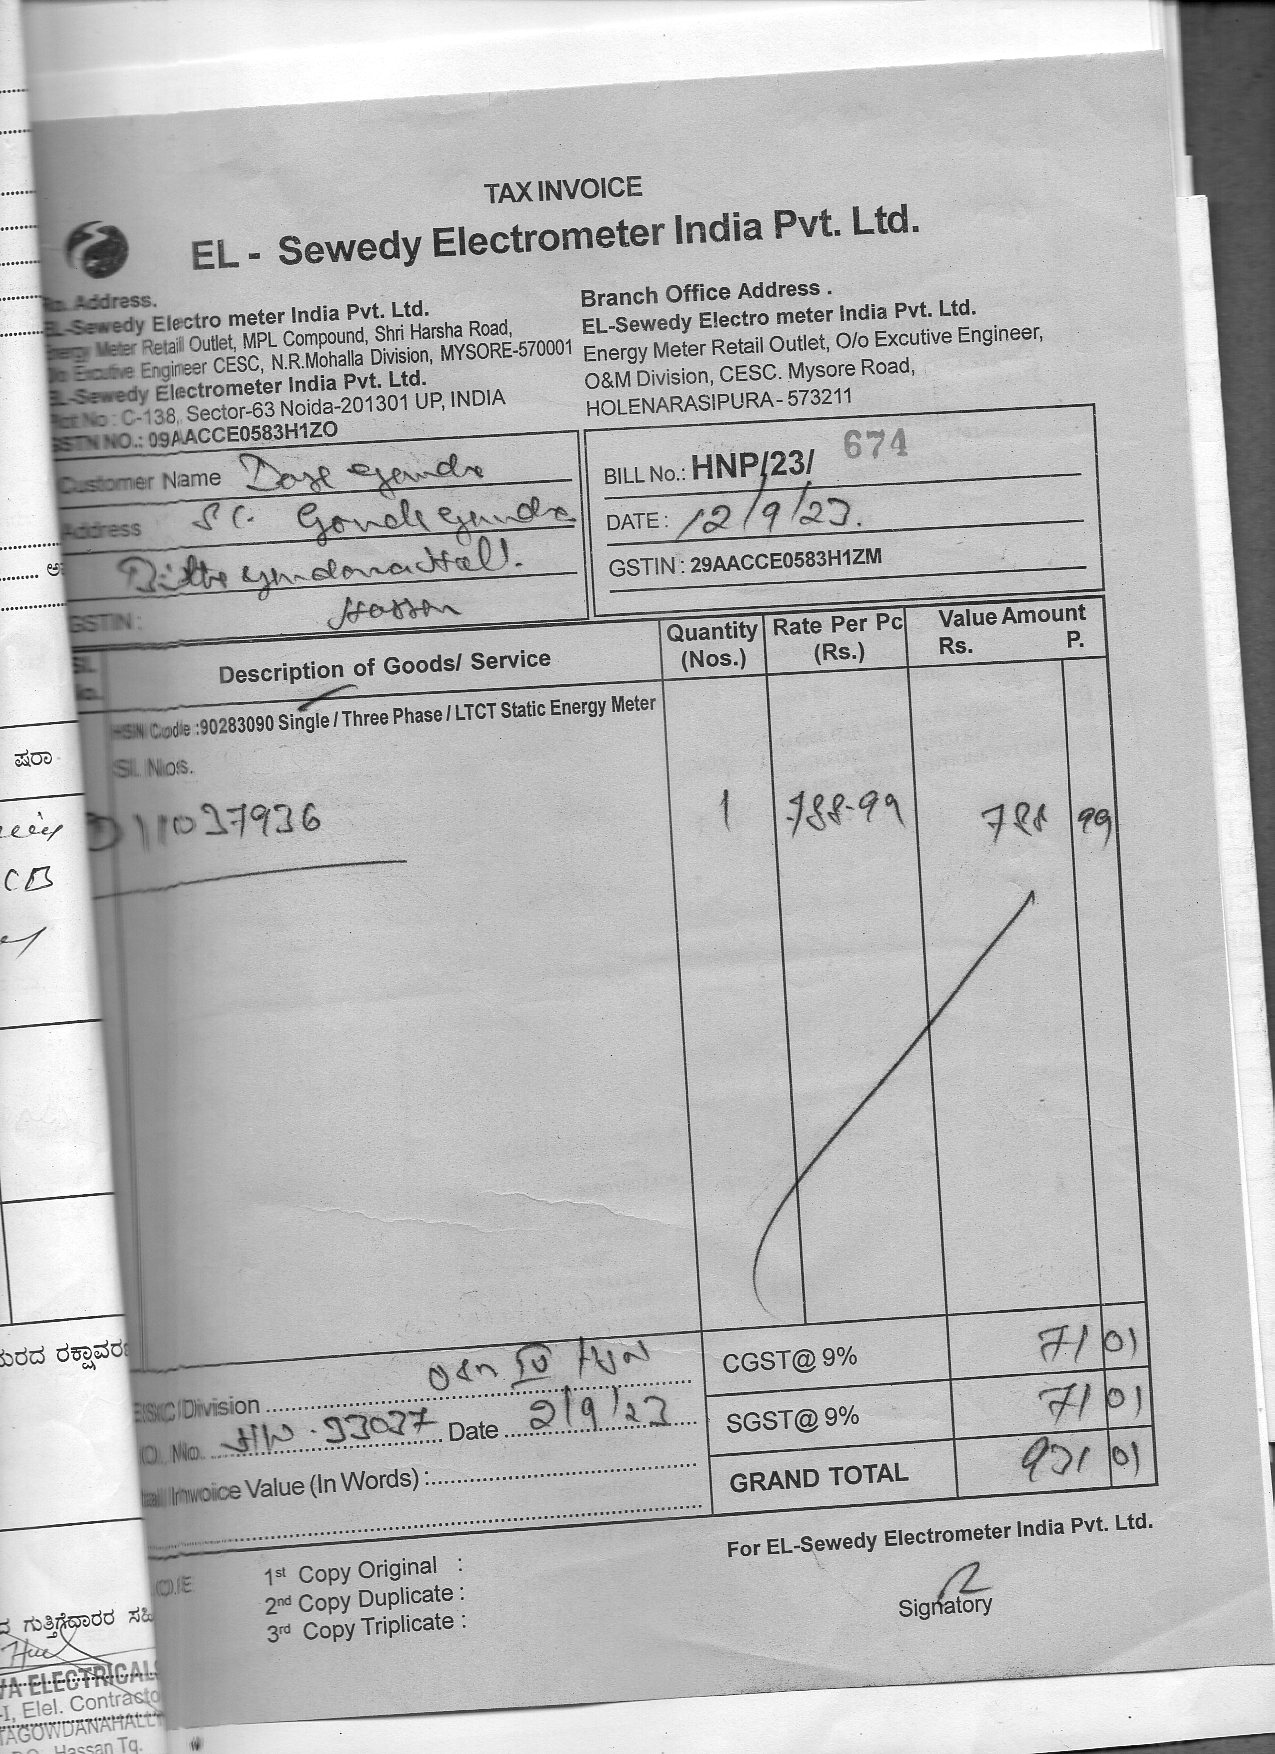 TAX INVOICE
EL - Sewedy Electrometer India Pvt. Ltd.
Address.
EL-Sewedy Electro meter India Pvt. Ltd.
Energy Meter Retail Outlet, MPL Compound, Shri Harsha Road,
Excutive Engineer CESC, N.R.Mohalla Division, MYSORE-570001
EL-Sewedy Electrometer India Pvt. Ltd.
Plot No : C-138, Sector-63 Noida-201301 UP, INDIA
GSTN NO.: 09AACCE0583H1ZO
Branch Office Address .
EL-Sewedy Electro meter India Pvt. Ltd.
Energy Meter Retail Outlet, O/o Excutive Engineer,
O&M Division, CESC. Mysore Road,
HOLENARASIPURA - 573211
Customer Name
Address
Hassan
GSTIN :
BILL No.: HNP/23/ 674
DATE : 12/9/23.
GSTIN : 29AACCE0583H1ZM
Sl. No. Description of Goods/ Service Quantity (Nos.) Rate Per Pc (Rs.) Value Amount Rs. P.
HSN Code :90283090 Single / Three Phase / LTCT Static Energy Meter
Sl. Nos.
11037936 1 788-99 788 99
CGST@ 9% 71 01
SGST@ 9% 71 01
GRAND TOTAL 931 01
Division
O. No. 93037 Date 2/9/23
Invoice Value (In Words) :
For EL-Sewedy Electrometer India Pvt. Ltd.
1st Copy Original :
2nd Copy Duplicate :
3rd Copy Triplicate :
Signatory
ಷರಾ
ರಕ್ಷಾವರಣ
ಗುತ್ತಿಗೆದಾರರ
ELECTRICALS
Elel. Contractor
Hassan Tq.